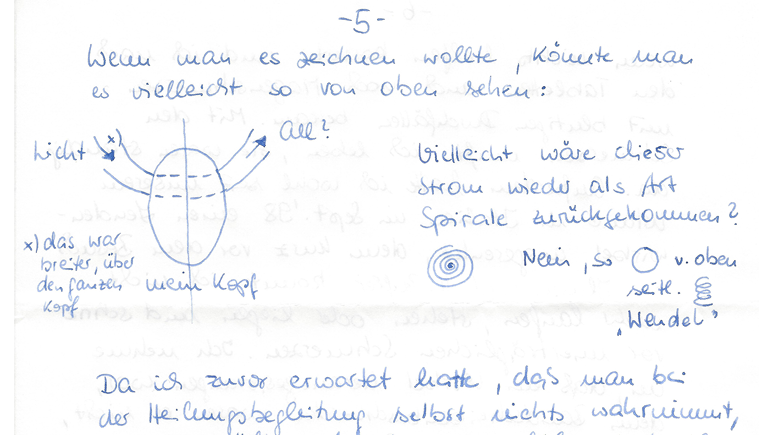 -5-
Wenn man es zeichnen wollte, könnte man
es vielleicht so von oben sehen:
Licht x) All?
Vielleicht wäre dieser
Strom wieder als Art
Spirale zurückgekommen?
x) das war
breiter, über
den ganzen
Kopf
mein Kopf
Nein, so v. oben
seitl.
"Wendel"
Da ich zuvor erwartet hatte, daß man bei
der Heilungsbegleitung selbst nichts wahrnimmt,